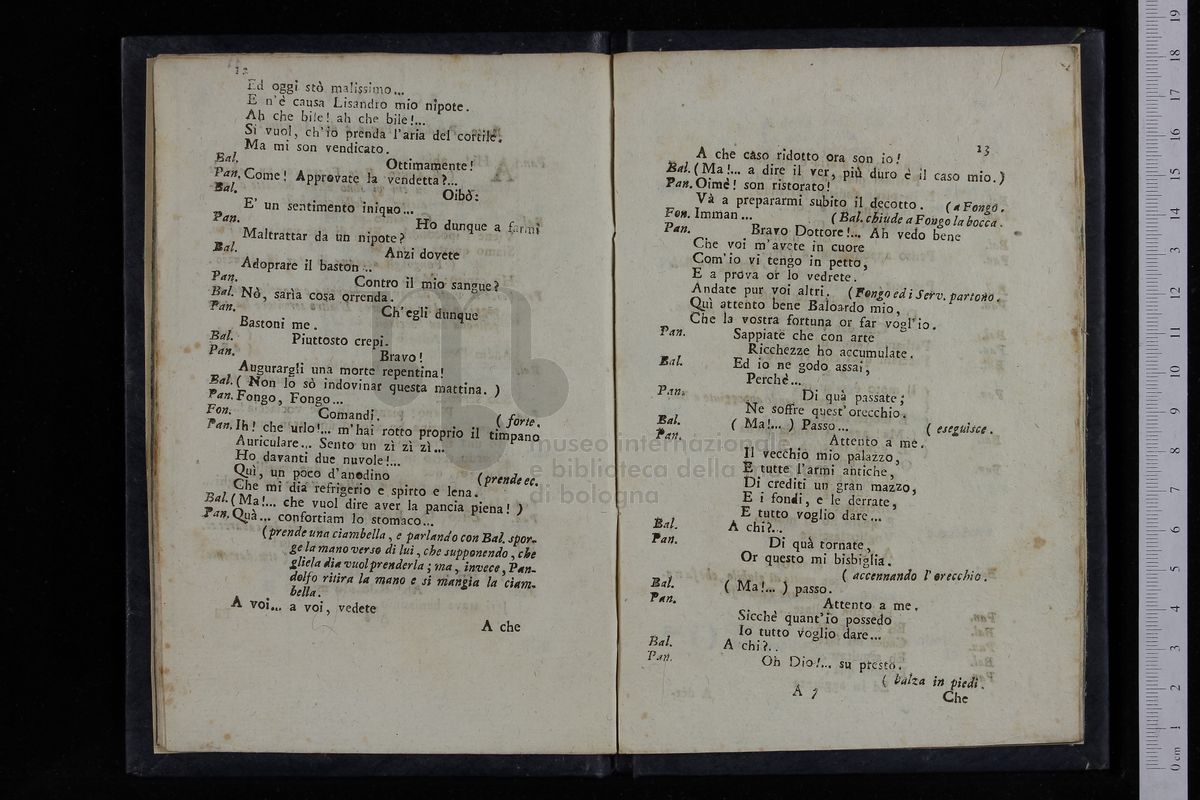 12
Ed oggi stò malissimo...
E n'è causa Lisandro mio nipote.
Ah che bile! ah che bile!...
Si vuol, ch'io prenda l'aria del cortile.
Ma mi son vendicato.
Bal. Ottimamente!
Pan. Come! Approvate la vendetta?...
Bal. Oibò:
E' un sentimento iniquo...
Pan. Ho dunque a farmi
Maltrattar da un nipote?
Bal. Anzi dovete
Adoprare il baston...
Pan. Contro il mio sangue?
Bal. Nò, saria cosa orrenda.
Pan. Ch'egli dunque
Bastoni me.
Bal. Piuttosto crepi.
Pan. Bravo!
Augurargli una morte repentina!
Bal. ( Non lo sò indovinar questa mattina. )
Pan. Fongo, Fongo...
Fon. Comandi. ( forte.
Pan. Ih! che urlo!... m'hai rotto proprio il timpano
Auriculare... Sento un zì zì zì...
Ho davanti due nuvole!...
Quì, un poco d'anodino (prende ec.
Che mi dia refrigerio e spirto e lena.
Bal. (Ma!... che vuol dire aver la pancia piena! )
Pan. Quà... confortiam lo stomaco...
(prende una ciambella, e parlando con Bal. spor-
ge la mano verso di lui, che supponendo, che
gliela dia vuol prenderla; ma, invece, Pan-
dolfo ritira la mano e si mangia la ciam-
bella.
A voi... a voi, vedete
A che
13
A che caso ridotto ora son io!
Bal. (Ma!... a dire il ver, più duro è il caso mio.)
Pan. Oimè! son ristorato!
Và a prepararmi subito il decotto. (a Fongo.
Fon. Imman... (Bal. chiude a Fongo la bocca.
Pan. Bravo Dottore!... Ah vedo bene
Che voi m'avete in cuore
Com'io vi tengo in petto,
E a prova or lo vedrete.
Andate pur voi altri. (Fongo ed i Serv. partono.
Quì attento bene Baloardo mio,
Che la vostra fortuna or far vogl'io.
Pan. Sappiate che con arte
Ricchezze ho accumulate.
Bal. Ed io ne godo assai,
Perchè...
Pan. Di quà passate;
Ne soffre quest'orecchio.
Bal. ( Ma!... ) Passo... ( eseguisce.
Pan. Attento a me.
Il vecchio mio palazzo,
E tutte l'armi antiche,
Di crediti un gran mazzo,
E i fondi, e le derrate,
E tutto voglio dare...
Bal. A chi?...
Pan. Di quà tornate,
Or questo mi bisbiglia.
( accennando l'orecchio.
Bal. ( Ma!... ) passo.
Pan. Attento a me.
Sicchè quant'io possedo
Io tutto voglio dare...
Bal. A chi?..
Pan. Oh Dio!... su presto.
( balza in piedi.
A 7
Che
museo internazionale
e biblioteca della
di bologna